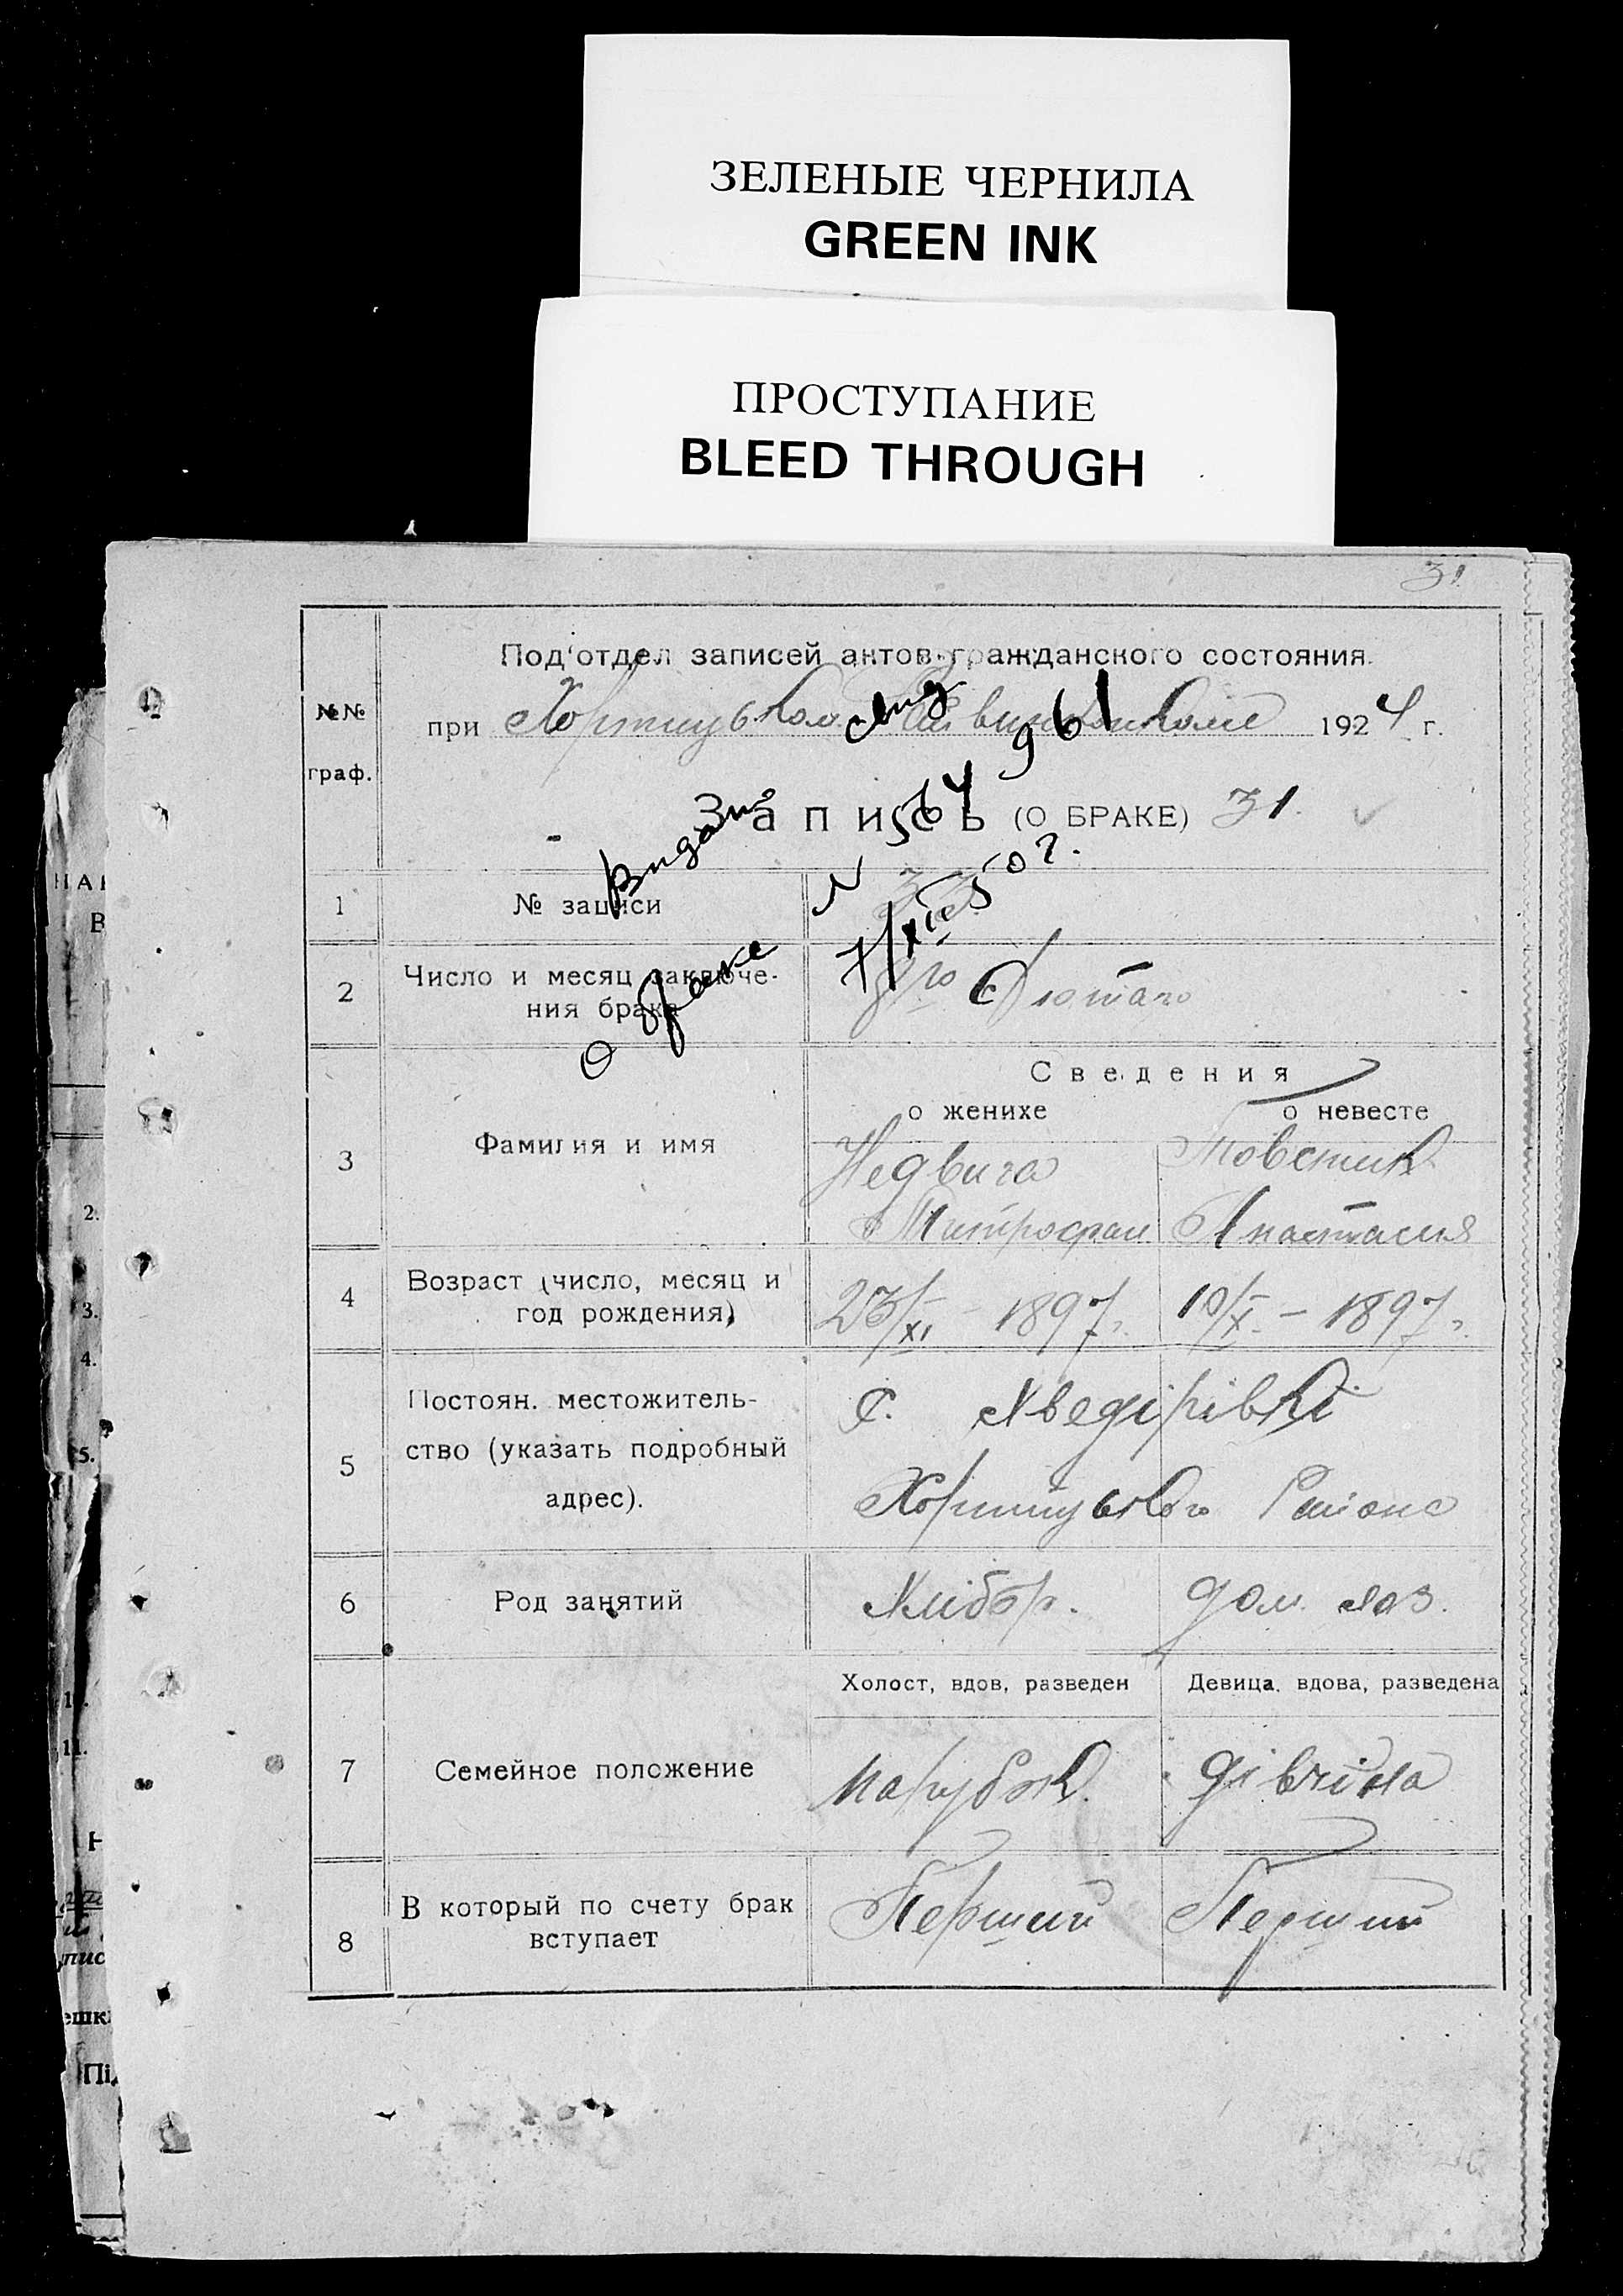 ЗЕЛЕНЫЕ ЧЕРНИЛА
GREEN INK
ПРОСТУПАНИЕ
BLEED THROUGH
31
Под'отдел записей актов гражданского состояния
№№ граф.
при Хортицьком 1924 г.
Запись (О БРАКЕ) 31.
Видано свид 961
о браке N 564
7/XII 50 г.
1 № записи
2 Число и месяц заключе-
ния брака
8го Лютаго
Сведения
о женихе о невесте
3 Фамилия и имя
Недвига Товстик
Митрофан Анастасия
4 Возраст (число, месяц и
год рождения)
23/XI - 1897 10/X - 1897
5 Постоян. местожитель-
ство (указать подробный
адрес).
С. Хведірівкі
Хортицького Району
6 Род занятий
Хлібор. дом. хоз.
Холост, вдов, разведен Девица, вдова, разведена
7 Семейное положение
парубок. дівчина
8 В который по счету брак
вступает
Перший Перший
НА
В
2.
3.
4.
5.
11.
Н
Під